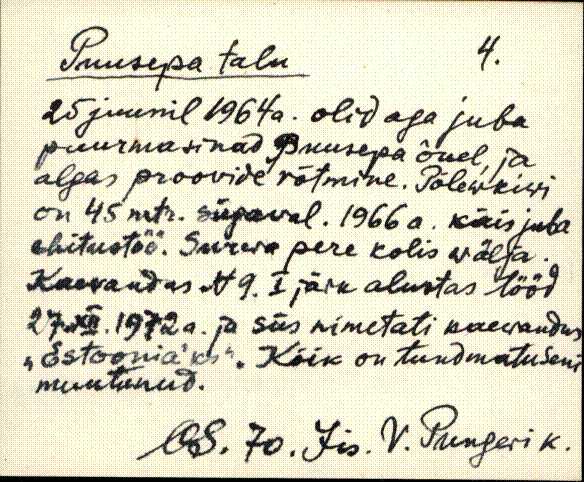 Puusepa talu 4.
25 juunil 1964 a. olid aga juba
puurmasinad Puusepa õuel, ja
algas proovide võtmine. Põlewkiwi
on 45 mtr. sügaval. 1966 a. käis juba
ehitustöö. Surwa pere kolis wälja.
Kaewandus N 9. I järk alustas tööd
27.XII.1972 a. ja siis nimetati kaewandus
"Estoonia'ks". Kõik on tundmatuseni
muutunud.
70. Jis. V. Pungerik.